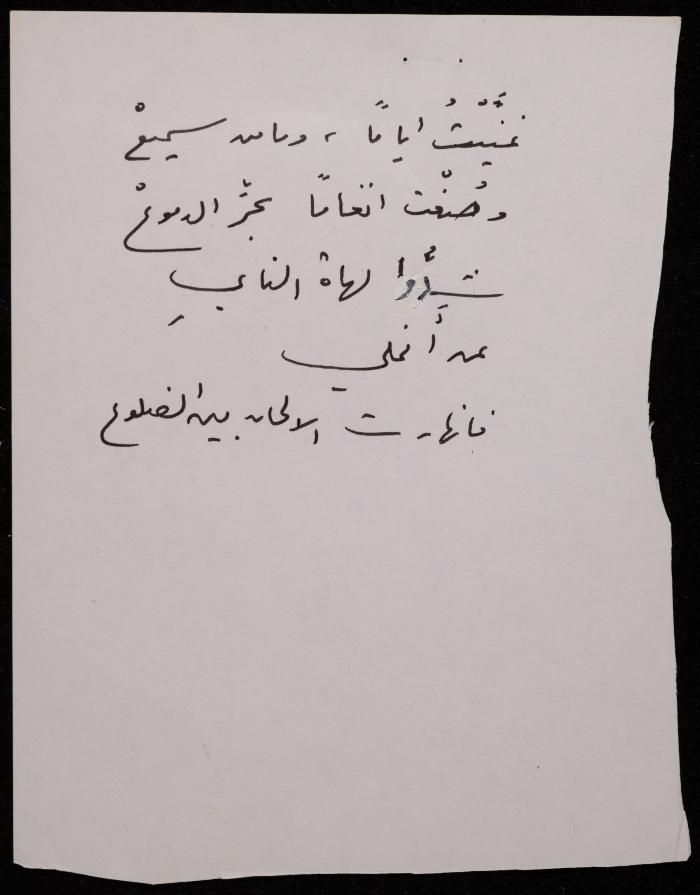 غنَّيْتُ أياماً ، وما من سميعْ
وصُغْت انغاماً بحرِّ الدموعْ
شدُّوا لهاة النايِ
عن أَنملي
فانهارت الالحان بين الضلوع